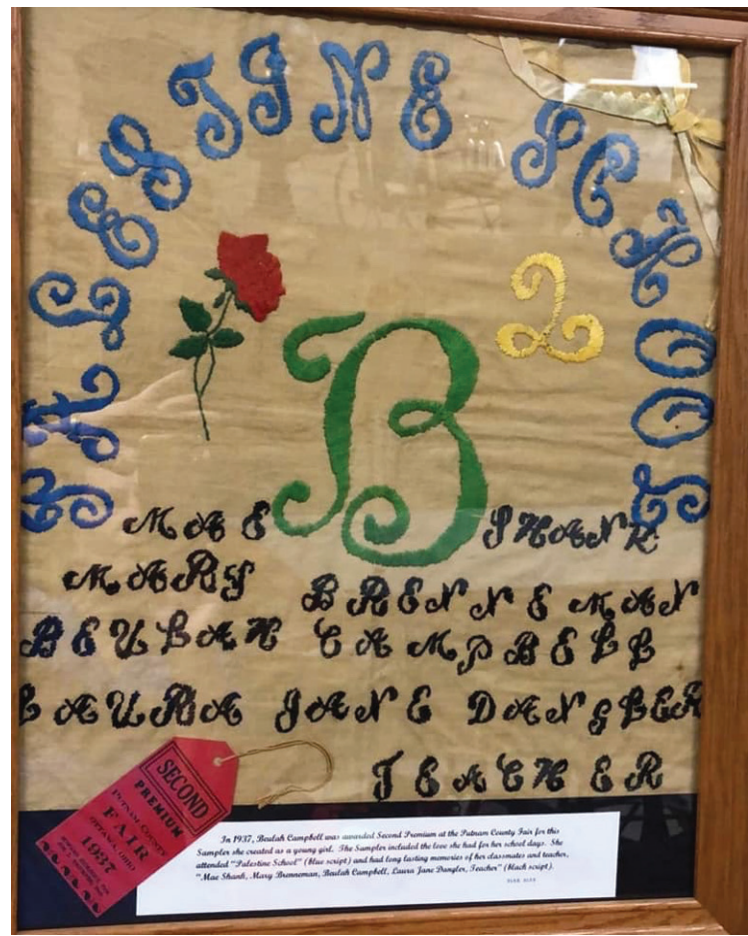 PALESTINE SCHOOL
B 2
MAE SHANK
MARY BRENNEMAN
BEULAH CAMPBELL
LAURA JANE DANGLER
TEACHER
SECOND
PREMIUM
PUTNAM COUNTY
FAIR
OTTAWA, OHIO
1937
In 1937, Beulah Campbell was awarded Second Premium at the Putnam County Fair for this
Sampler she created as a young girl. The Sampler included the love she had for her school days. She
attended "Palestine School" (blue script) and had long lasting memories of her classmates and teacher,
"Mae Shank, Mary Brenneman, Beulah Campbell, Laura Jane Dangler, Teacher" (black script).